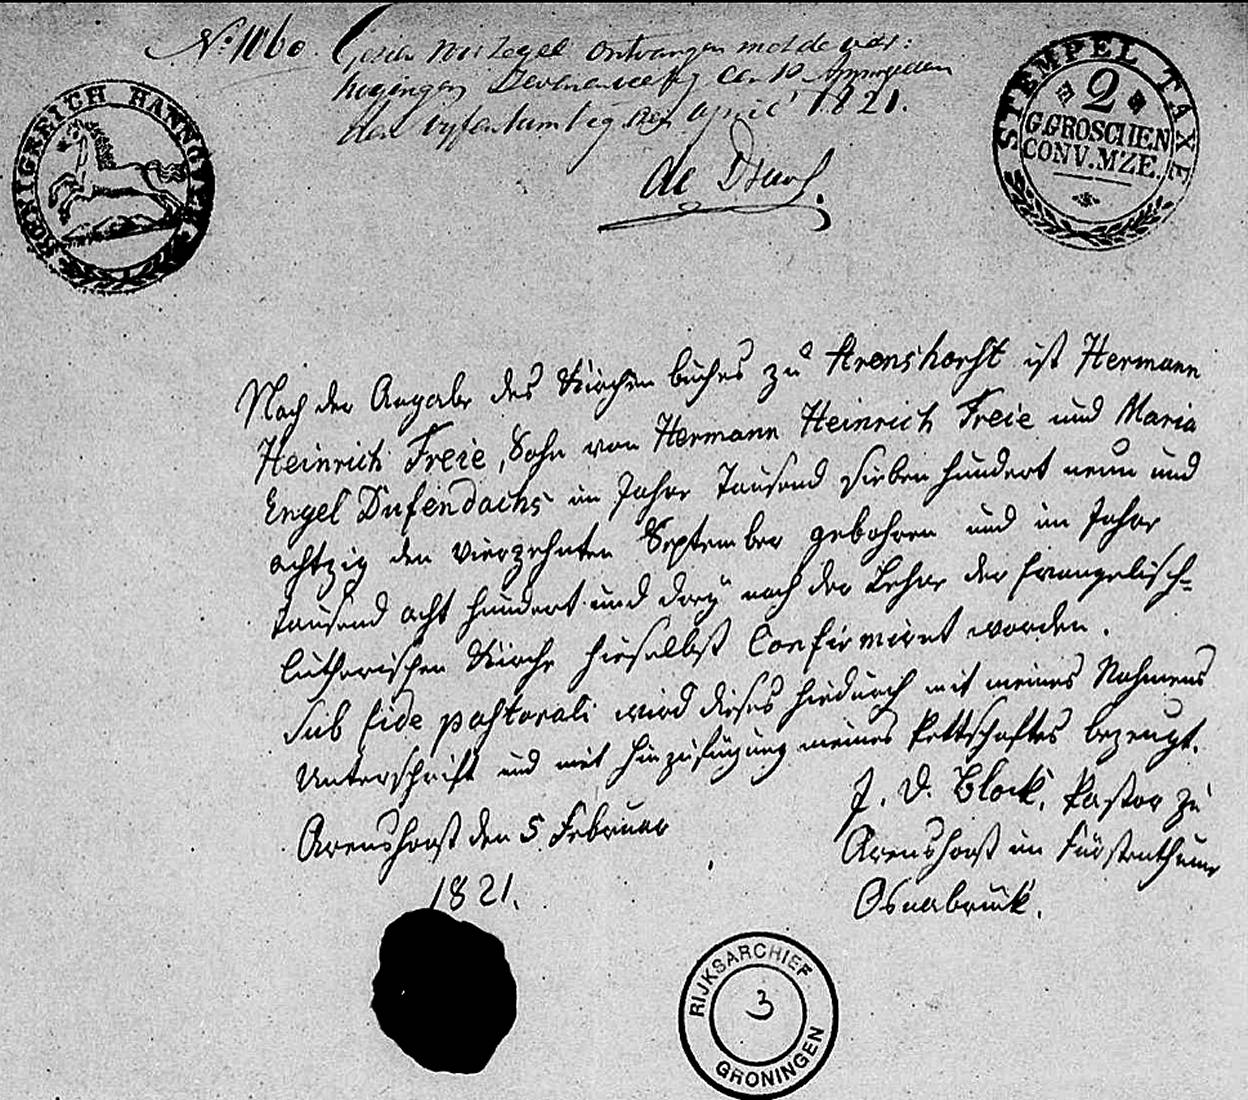 No. 1060.
ontvangen
april 1821.
KÖNIGREICH HANNOVER
STEMPEL TAXE
2
G.GROSCHEN
CONV.MZE.
Nach der Angabe des Kirchen buches zu Arenshorst ist Hermann
Heinrich Freie, Sohn von Hermann Heinrich Freie und Maria
Engel Dufendachs im Jahr Tausend sieben hundert neun und
achtzig den vierzehnten September gebohren und im Jahr
tausend acht hundert und drey nach der Lehre der Evangelisch-
lutherischen Kirche hieselbst Confirmirt worden.
Sub fide pastorali wird dieses hiedurch mit meines Nahmens
Unterschrift und mit Hinzufügung meines Pettschaftes bezeugt.
Arenshorst den 5. Februar
1821.
J. D. Block, Pastor zu
Arenshorst im Fürstenthum
Osnabrück.
RIJKSARCHIEF
3
GRONINGEN